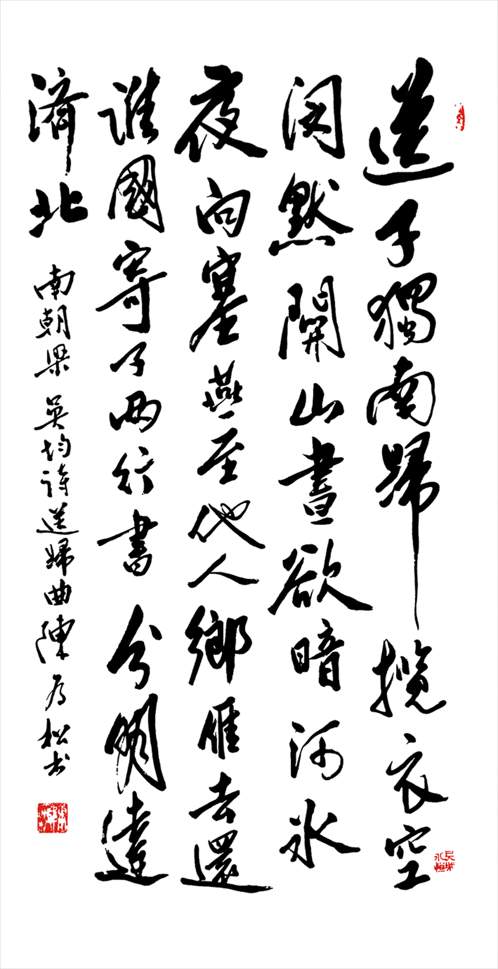 送子獨南歸攬衣空
闵默開山晝欲暗河冰
夜向塞燕至他人鄉雁去還
誰國寄子兩行書分明達
濟北
南朝梁吳均詩送歸曲陳为松书